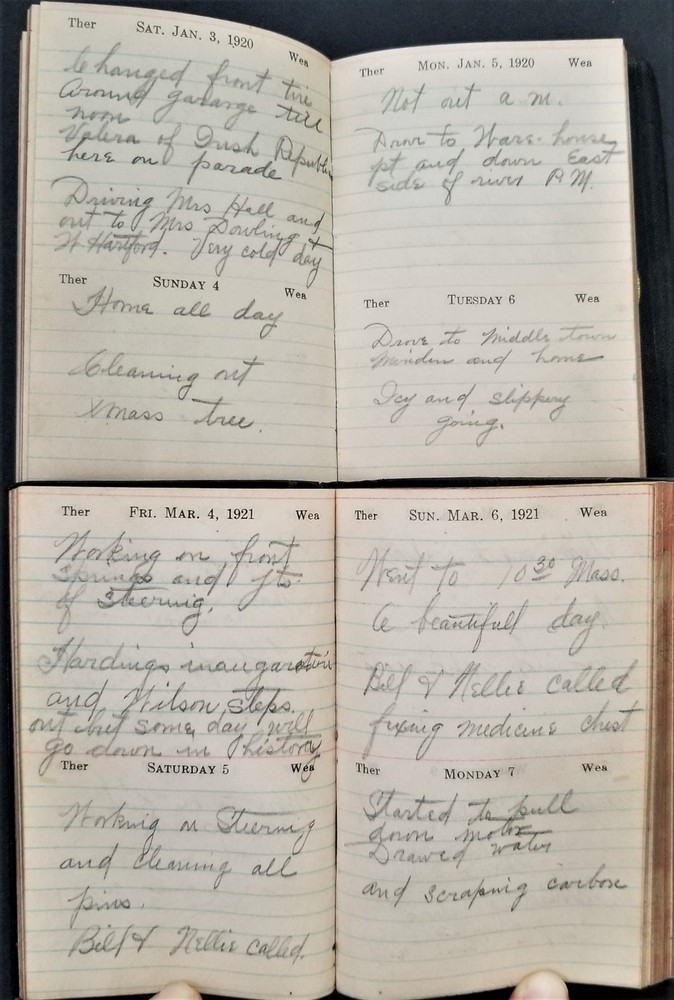 Ther SAT. JAN. 3, 1920 Wea
Changed front tire
Around garage till
noon
Valera of Irish Republic
here on parade
Driving Mrs Hall and
out to Mrs Dowling +
W Hartford. Very cold day
Ther SUNDAY 4 Wea
Home all day
Cleaning out
Xmass tree.
Ther MON. JAN. 5, 1920 Wea
Not out a m.
Drove to Ware-house
pt and down East
side of river P.M.
Ther TUESDAY 6 Wea
Drove to Middletown
and home
Icy and slippery
going.
Ther FRI. MAR. 4, 1921 Wea
Working on front
springs and jts
of Steering.
Hardings inaugaration
and Wilson steps
out but some day will
go down in history
Ther SATURDAY 5 Wea
Working on Steering
and cleaning all
pins.
Bill & Nellie called.
Ther SUN. MAR. 6, 1921 Wea
Went to 10 30 Mass.
A beautifull day.
Bill & Nellie called
fixing medicine chest
Ther MONDAY 7 Wea
Started to pull
down motor
Drawed water
and scraping carbon